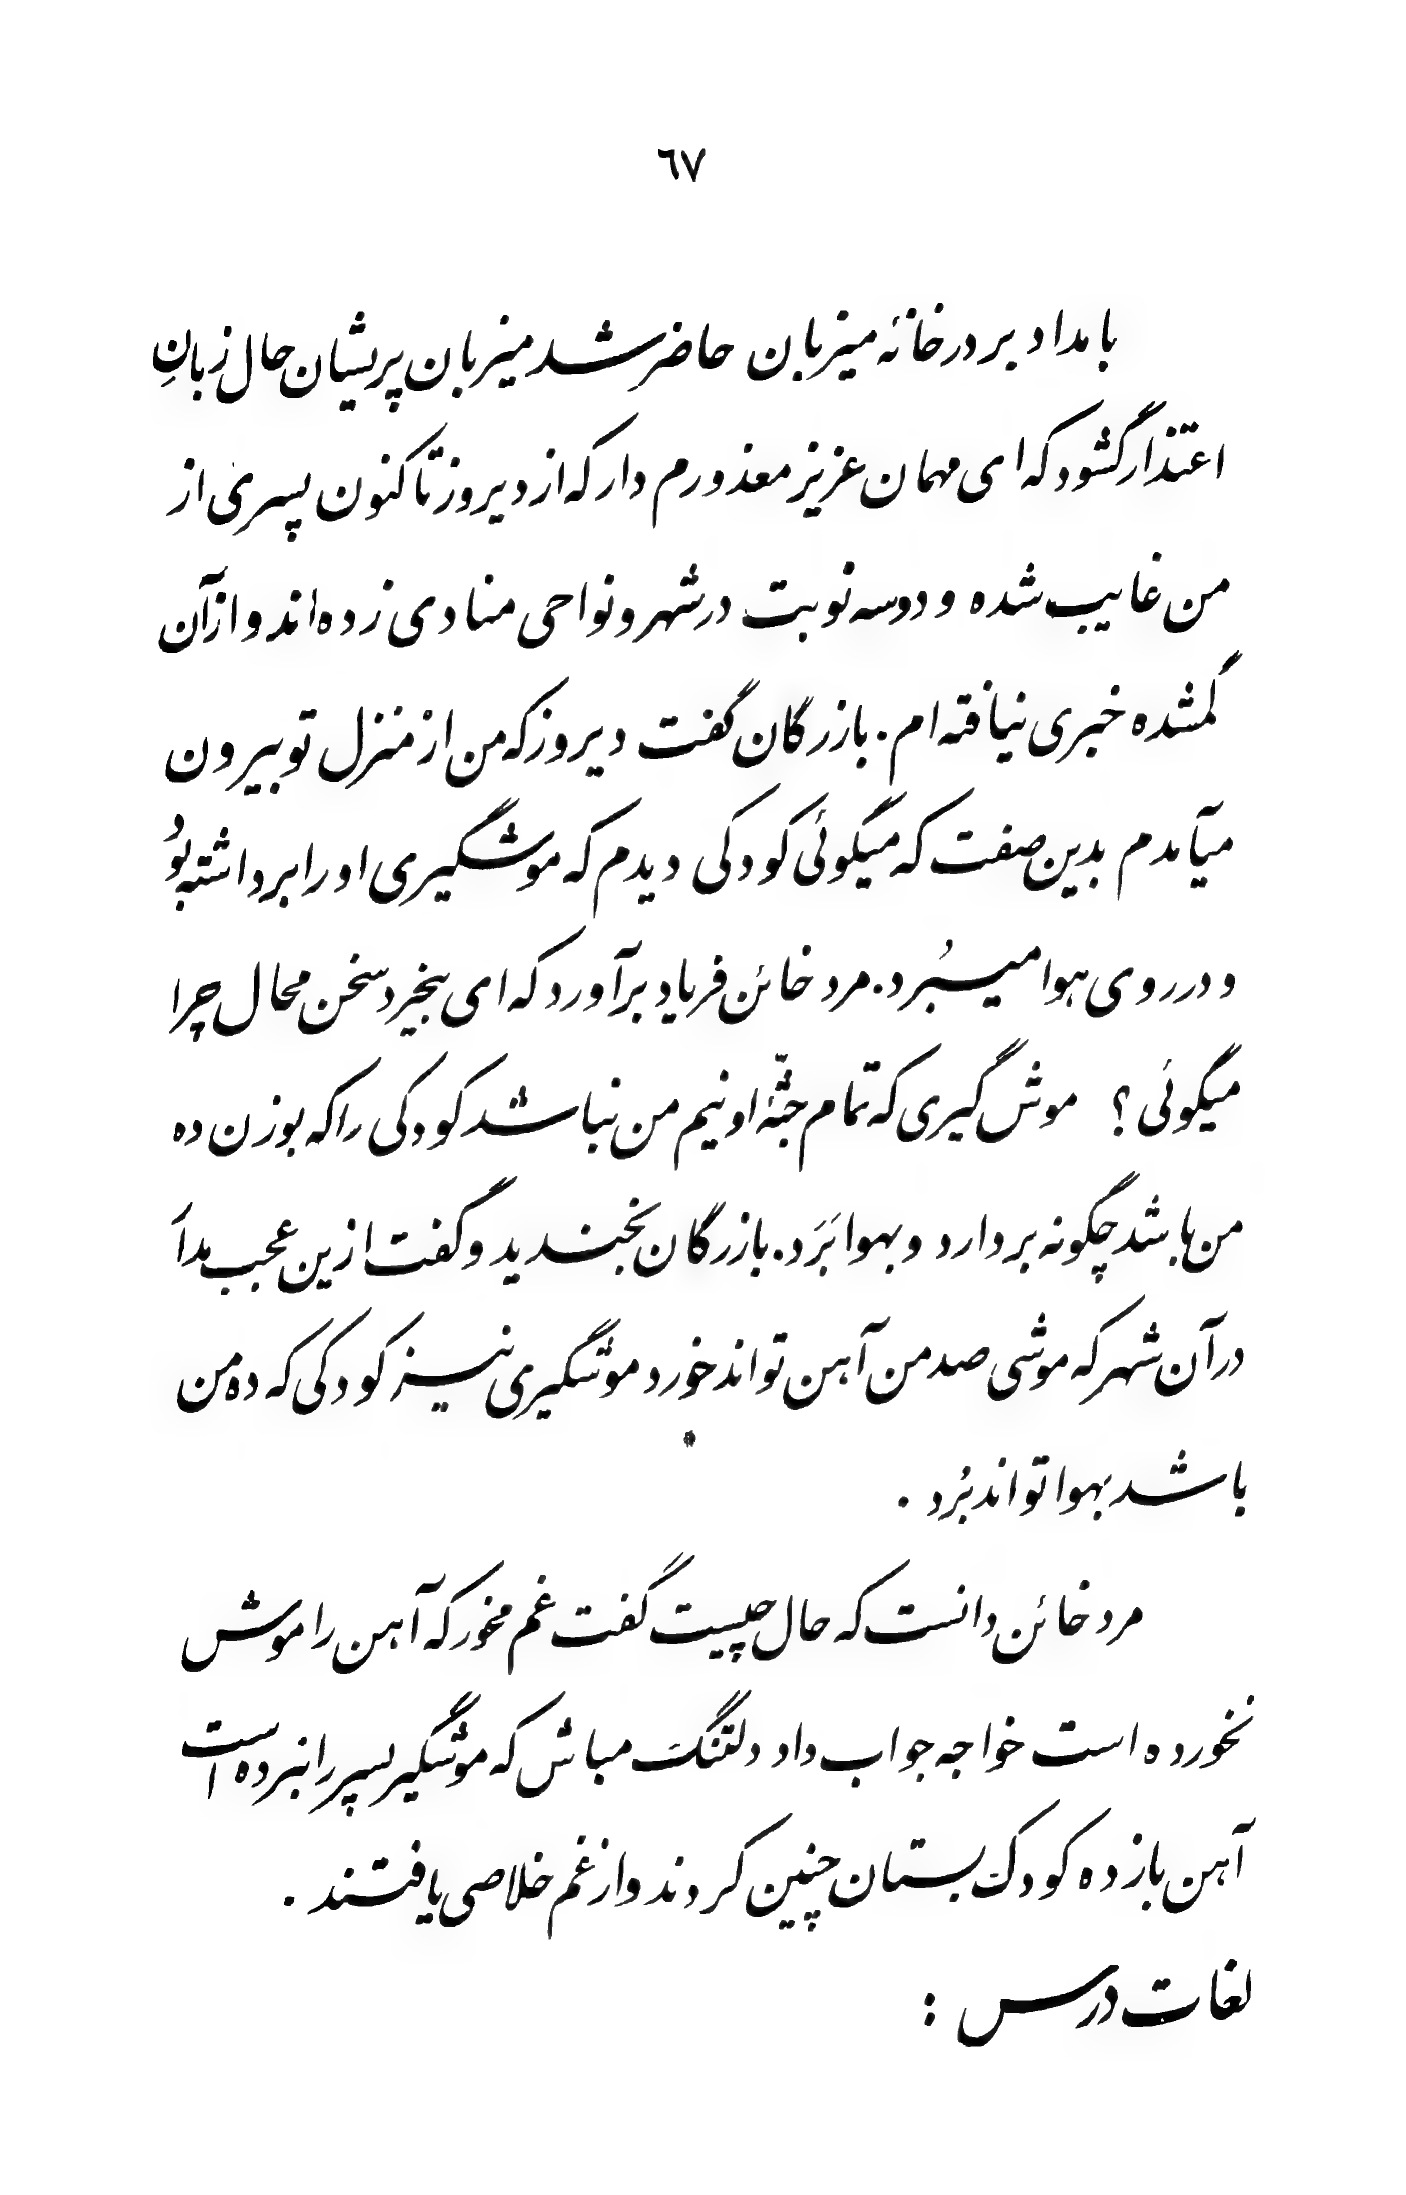 ٦٧
بامداد بر در خانهٔ میزبان حاضر شد میزبان پریشان حال زبانِ
اعتذار گشود که ای مهمان عزیز معذورم دار که از دیروز تا کنون پسری از
من غایب شده و دو سه نوبت در شهر و نواحی منادی زده‌اند و از آن
گمشده خبری نیافته ام . بازرگان گفت دیروز که من از منزل تو بیرون
میآمدم بدین صفت که میگوئی کودکی دیدم که موشگیری او را برداشته بُو
و در روی هوا میبُرد . مرد خائن فریاد برآورد که ای بیخرد سخن محال چرا
میگوئی ؟ موش گیری که تمام جثّهٔ او نیم من نباشد کودکی را که بوزن ده
من باشد چگونه بردارد و بهوا بَرَد . بازرگان بخندید و گفت ازین عجب مداَ
در آن شهر که موشی صد من آهن تواند خورد موشگیری نیز کودکی که ده من
باشد بهوا تواند بُرد .
مرد خائن دانست که حال چیست گفت غم مخور که آهن را موش
نخورده است خواجه جواب داد دلتنگ مباش که موشگیر پسر را نبرده است
آهن باز ده کودک بستان چنین کردند و از غم خلاصی یافتند .
لغات درس :